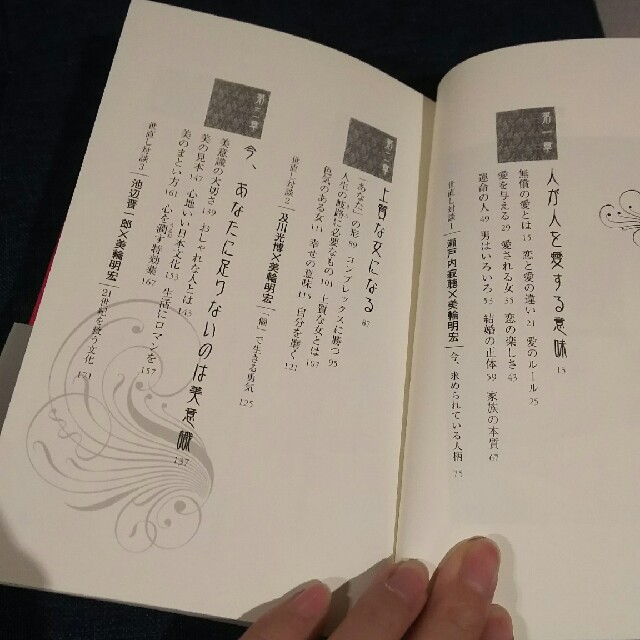 第一章
人が人を愛する意味 13
無償の愛とは 15 恋と愛の違い 21 愛のルール 25
愛を与える 29 愛される女 35 恋の楽しさ 43
運命の人 49 男はいろいろ 53 結婚の正体 59 家族の本質 67
世直し対談1 瀬戸内寂聴×美輪明宏 今、求められている人柄 75
第二章
上質な女になる 87
「あなた」の形 89 コンプレックスに勝つ 95
人生の岐路に必要なもの 101 上質な女とは 107
色気のある女 111 幸せの意味 115 自分を磨く 121
世直し対談2 及川光博×美輪明宏 「個」で生きる勇気 125
第三章
今、あなたに足りないのは美意識 137
美意識の大切さ 139 おしゃれな人とは 143
美の見本 147 心地いい日本文化 153 生活にロマンを 157
美のまとい方 161 心を潤す特効薬 167
世直し対談3 池辺晋一郎×美輪明宏 21世紀を救う文化 171